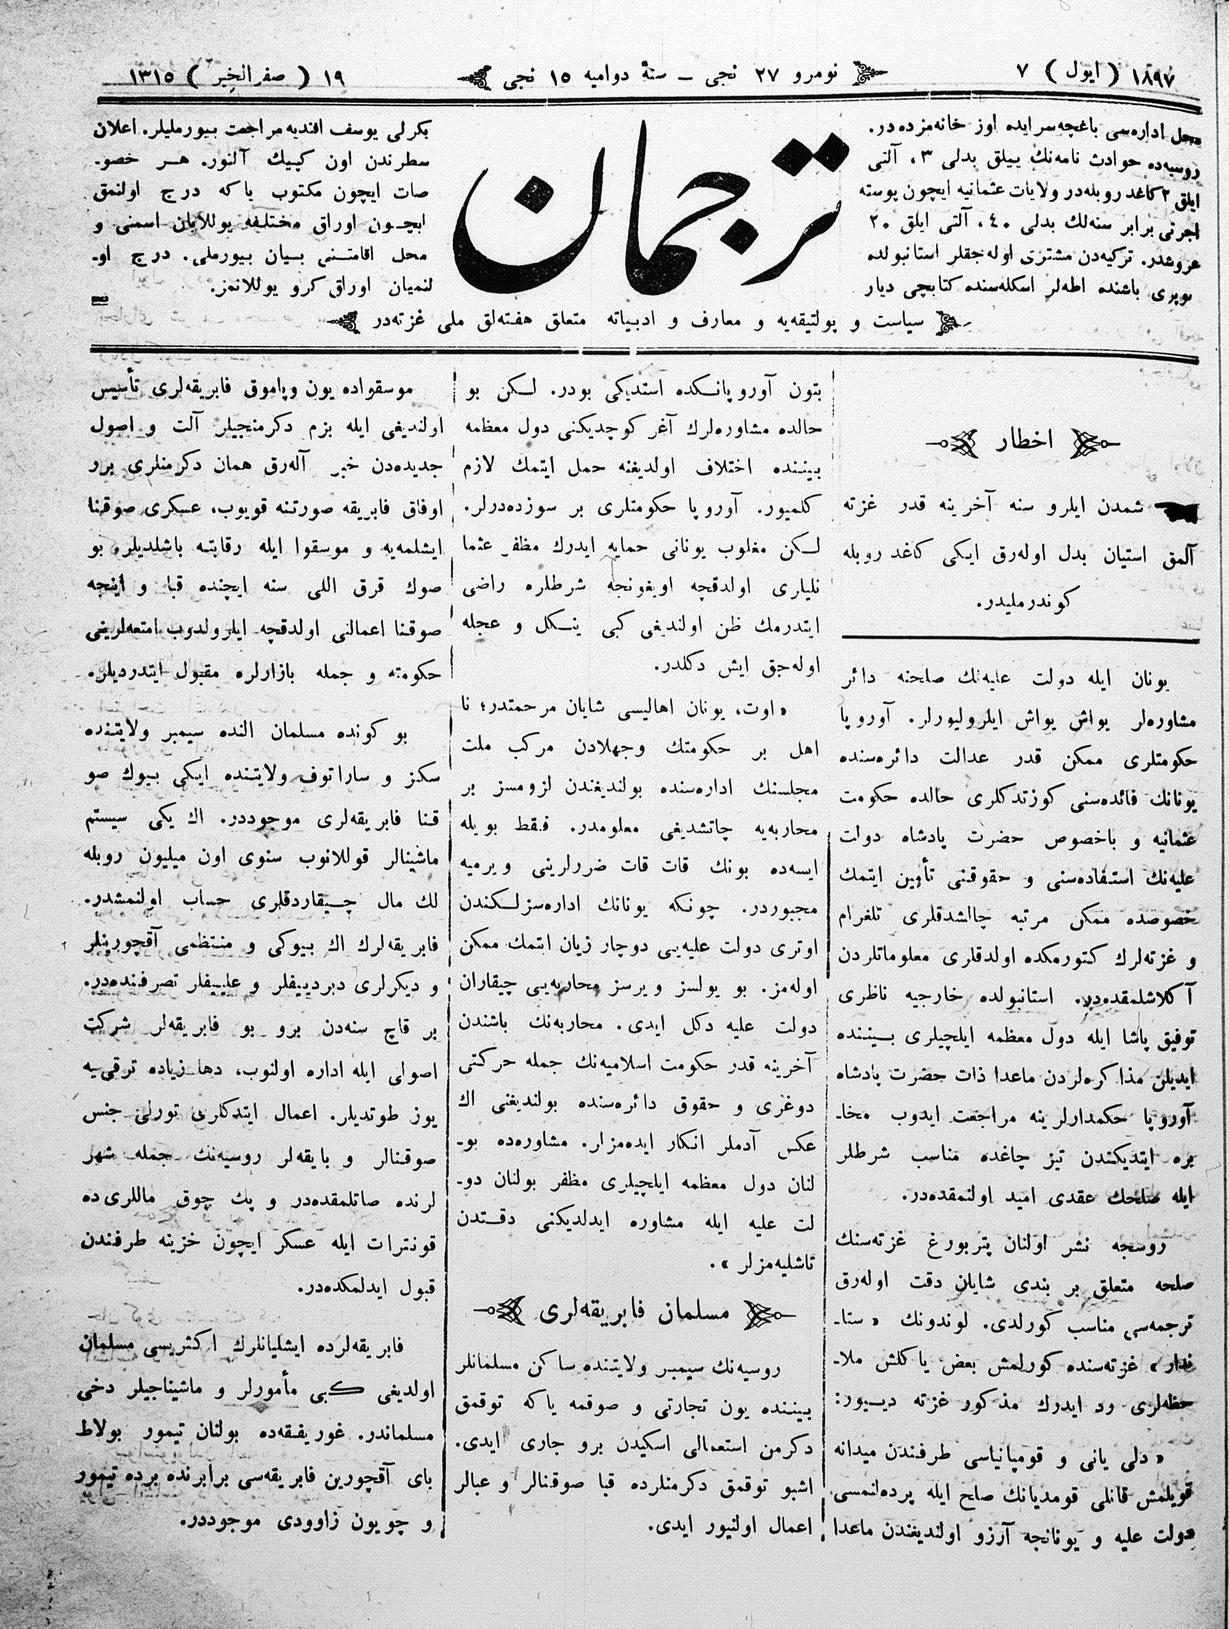 ١٨٩٧ ( ايول ) ٧
نومرو ٢٧ نجى ـ سنهٔ دواميه ١٥ نجى
١٩ ( صفر الخير ) ١٣١٥
محل اداره‌سى باغچه‌سرايده اوز خانه‌مزده‌در.
روسيه‌ده حوادث نامه‌نك ييلق بدلى ٣، آلتى
ايلق ٢ كاغد روبله‌در ولايات عثمانيه ايچون پوسته
اجرتى برابر سنه‌لك بدلى ٤٠، آلتى ايلق ٢٠
غروشدر. تركيه‌دن مشترى اوله‌جقلر استانبولده
كوپرى باشنده اطه‌لر اسكله‌سنده كتابچى ديار
ترجمان
بكرلى يوسف افنديه مراجعت بيورمليلر. اعلان
سطرندن اون كپيك آلنور. هر خصو-
صات ايچون مكتوب ياكه درج اولنمق
ايچون اوراق مختلفه يوللايان اسمنى و
محل اقامتنى بيان بيورملى. درج او-
لنميان اوراق كرو يوللانمز.
سياست و پولتيقه‌يه و معارف و ادبياته متعلق هفته‌لق ملى غزته‌در
اخطار
شمدن ايلرو سنه آخرينه قدر غزته
آلمق استيان بدل اوله‌رق ايكى كاغد روبله
كوندرمليدر.
يونان ايله دولت عليه‌نك صلحنه دائر
مشاوره‌لر يواش يواش ايلروليورلر. آوروپا
حكومتلرى ممكن قدر عدالت دائره‌سنده
يونانك فائده‌سنى كوزتدكلرى حالده حكومت
عثمانيه و باخصوص حضرت پادشاه دولت
عليه‌نك استفاده‌سنى و حقوقنى تأمين ايتمك
خصوصده ممكن مرتبه چالشدقلرى تلغرام
و غزته‌لرك كتورمكده اولدقلرى معلوماتلردن
آكلاشلمقده‌در. استانبولده خارجيه ناظرى
توفيق پاشا ايله دول معظمه ايلچيلرى بيننده
ايديلن مذاكره‌لردن ماعدا ذات حضرت پادشاه
آوروپا حكمدارلرينه مراجعت ايدوب مخا-
بره ايتديكندن تيز چاغده مناسب شرطلر
ايله صلحك عقدى اميد اولنمقده‌در.
روسجه نشر اولنان پتربورغ غزته‌سنك
صلحه متعلق بر بندى شايان دقت اوله‌رق
ترجمه‌سى مناسب كورلدى. لوندونك « ستا-
ندار » غزته‌سنده كورلمش بعض ياكلش ملا-
حظه‌لرى رد ايدرك مذكور غزته ديیور:
« دلى يانى و قومپانياسى طرفندن ميدانه
قويلمش قانلى قومديانك صلح ايله پرده‌لنمسى
دولت عليه و يونانجه آرزو اولنديغندن ماعدا
بتون آوروپانكده استديكى بودر. لكن بو
حالده مشاوره‌لرك آغر كوچديكنى دول معظمه
بيننده اختلاف اولديغنه حمل ايتمك لازم
كلميور. آوروپا حكومتلرى بر سوزده‌درلر.
لكن مغلوب يونانى حمايه ايدرك مظفر عثما
نليلرى اولدقچه اويغونجه شرطلره راضى
ايتدرمك ظن اولنديغى كبى ينكل و عجله
اوله‌جق ايش دكلدر.
« اوت، يونان اهاليسى شايان مرحمتدر؛ نا
اهل بر حكومتك وجهلادن مركب ملت
مجلسنك اداره‌سنده بولنديغندن لزومسز بر
محاربه‌يه چاتشديغى معلومدر. فقط بويله
ايسه‌ده بونك قات قات ضررلرينى ويرميه
مجبوردر. چونكه يونانك اداره‌سزلكندن
اوترى دولت عليه‌يى دوچار زيان ايتمك ممكن
اوله‌مز. بو يولسز و يرسز محاربه‌يى چيقاران
دولت عليه دكل ايدى. محاربه‌نك باشندن
آخرينه قدر حكومت اسلاميه‌نك جمله حركتى
دوغرى و حقوق دائره‌سنده بولنديغنى اك
عكس آدملر انكار ايده‌مزلر. مشاوره‌ده بو-
لنان دول معظمه ايلچيلرى مظفر بولنان دو-
لت عليه ايله مشاوره ايدلديكنى دقتدن
تاشليه‌مزلر ».
مسلمان فابريقه‌لرى
روسيه‌نك سيمبر ولايتنده ساكن مسلمانلر
بيننده يون تجارتى و صوقمه ياكه توقمق
دكرمن استعمالى اسكيدن برو جارى ايدى.
اشبو توقمق دكرمنلرده قبا صوقنالر و عبالر
اعمال اولنيور ايدى.
موسقواده يون وپاموق فابريقه‌لرى تأسيس
اولنديغى ايله بزم دكرمنجيلر آلت و اصول
جديده‌دن خبر آله‌رق همان دكرمنلرى برو
اوفاق فابريقه صورتنه قويوب، عسكرى صوقنا
ايشلمه‌يه و موسقوا ايله رقابته باشلديلر. بو
صوك قرق اللى سنه ايچنده قبا و اينجه
صوقنا اعمالنى اولدقچه ايلرولدوب امتعه‌لرينى
حكومته و جمله بازارلره مقبول ايتدرديلر.
بو كونده مسلمان النده سيمبر ولايتنده
سكز و ساراتوف ولايتنده ايكى بيوك صو
قنا فابريقه‌لرى موجوددر. اك يكى سيستم
ماشينالر قوللانوب سنوى اون ميليون روبله
لك مال چيقاردقلرى حساب اولنمشدر.
فابريقه‌لرك اك بيوكى و منتظمى آقچورينلر
و ديكرلرى دبردييفلر و علييفلر تصرفنده‌در.
بر قاچ سنه‌دن برو بو فابريقه‌لر شركت
اصولى ايله اداره اولنوب، دها زياده ترقى‌يه
يوز طوتديلر. اعمال ايتدكلرى تورلى جنس
صوقنالر و بايقه‌لر روسيه‌نك جمله شهر
لرنده صاتلمقده‌در و پك چوق ماللرى ده
قونترات ايله عسكر ايچون خزينه طرفندن
قبول ايدلمكده‌در.
فابريقه‌لرده ايشليانلرك اكثريسى مسلمان
اولديغى كبى مأمورلر و ماشيناجيلر دخى
مسلماندر. غوريفقه‌ده بولنان تيمور بولاط
باى آقچورين فابريقه‌سى برابرنده برده تيمور
و چويون زاوودى موجوددر.